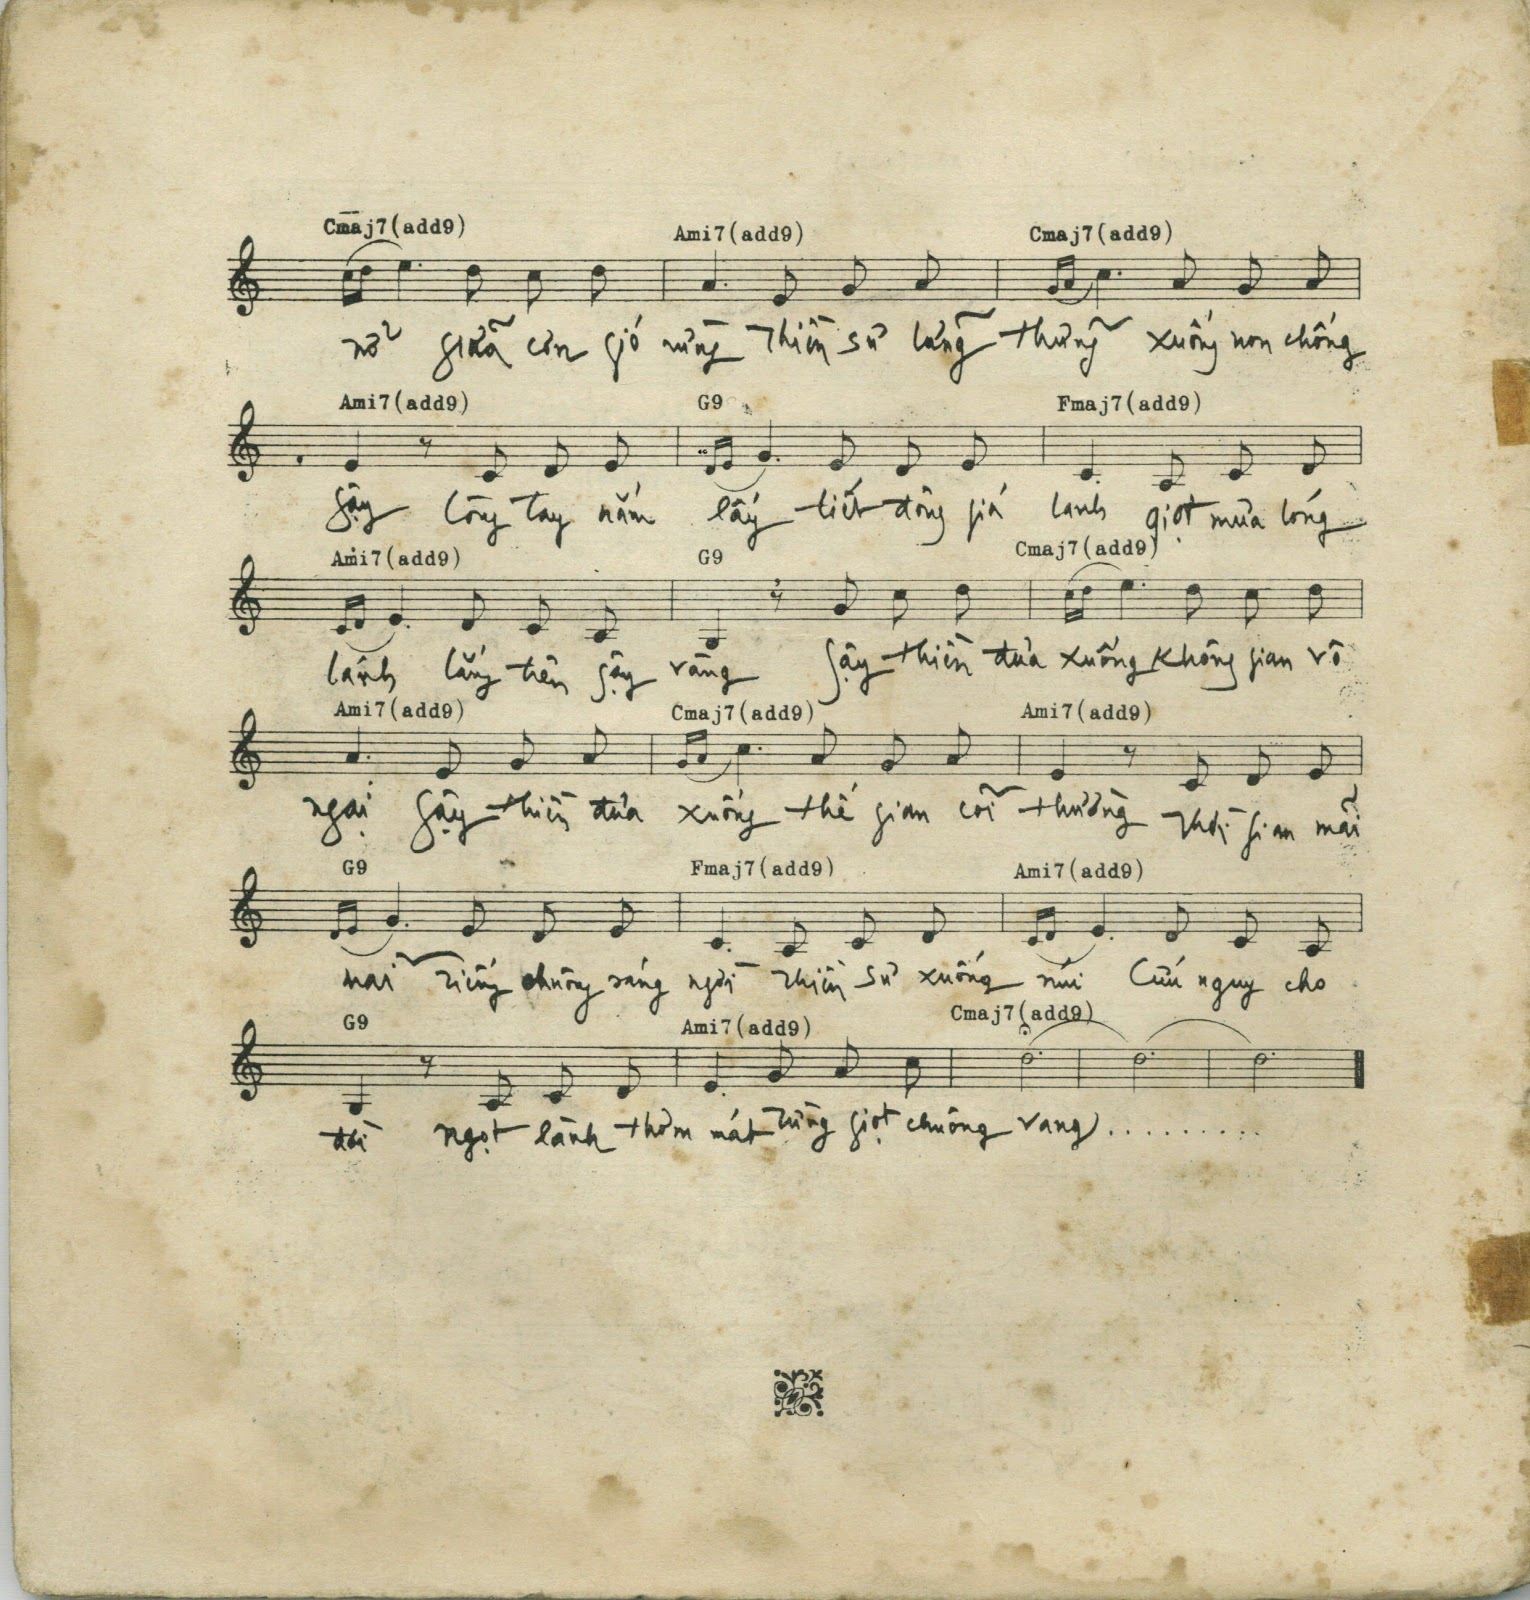 Cmaj7(add9) Ami7(add9) Cmaj7(add9)
nở giữa cơn gió rừng Thiền sư lững thững xuống non chống
Ami7(add9) G9 Fmaj7(add9)
gậy lòng tay nắm lấy tiết đông giá lanh giọt mưa lóng
Ami7(add9) G9 Cmaj7(add9)
lánh lắng trên gậy vàng gậy thiền đưa xuống không gian vô
Ami7(add9) Cmaj7(add9) Ami7(add9)
ngại gậy thiền đưa xuống thế gian cõi thường Thời gian mãi
G9 Fmaj7(add9) Ami7(add9)
mai Tiếng chuông sáng ngời Thiền sư xuống núi Cứu nguy cho
G9 Ami7(add9) Cmaj7(add9)
đời ngọt lành thơm mát từng giọt chuông vang..........